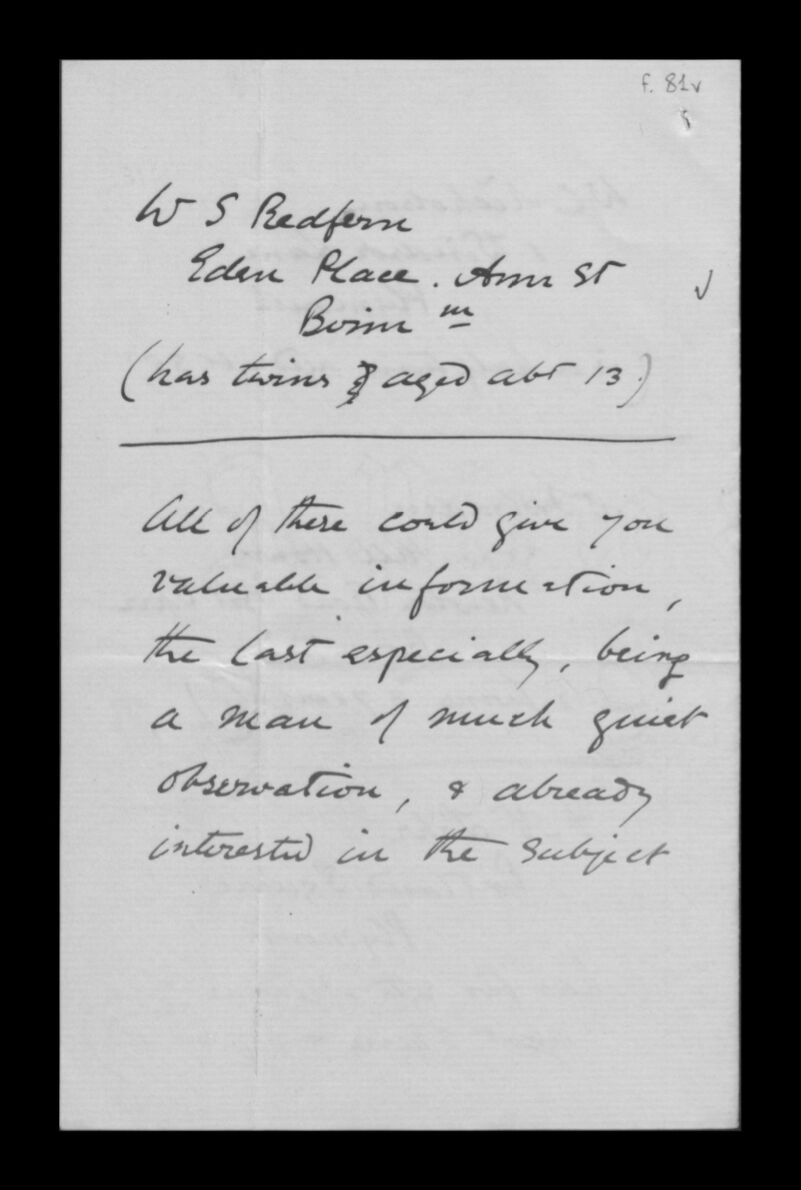 f. 81v
W S Redfern
Eden Place. Ann St
Birm m
(has twins aged abt 13)
All of these could give you
valuable information,
the last especially, being
a man of much quiet
observation, & already
interested in the Subject